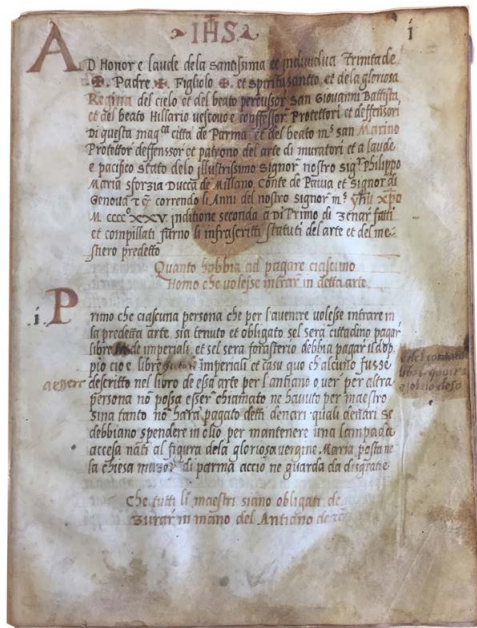 IHS
i
AD Honor e laude dela santissima et individua Trinitade
✠. Padre ✠. Figliolo ✠ et spiritusantto et dela gloriosa
Regina del cielo et del beato percussor San Giovanni Battista,
et del beato Hillario vescovo e confessor Protettori et deffensori
Di questa mag.ca citta de Parma et del beato m.s san Marino
Protettor deffenssor et patrono del arte di muratori et a laude
e pacifico stato delo illustrissimo Signor nostro sig.r Philippo
Maria sforzia Ducca de Millano Conte de Pavia et Signor di
Genova correndo li Anni del nostro signor m.s xpo
M cccc° XXXV. inditione seconda a Di Primo di Zenar fatti
et compillati furno li infrascritti statuti del arte et del me-
stiero predetto
Quanto habbia ad pagare ciascuno
Homo che volesse intrar in detta arte
.i. Primo che ciascuna persona che per l'avenire volesse intrare in
la predetta arte sia tenuto et obligato sel sera cittadino pagar
libre de imperiali, et sel sera forastiero debbia pagar il dop-
pio cioe libre imperiali et casu quo ch'alcuno fusse
descritto nel libro de esa arte per l'antiano o ver per altra
persona no possa esser chiamato ne havuto per maestro
sina tanto no havra pagato detti denari quali denari se
debbiano spendere in olio per mantenere una lampada
accesa nati al figura dela gloriosa vergine Maria posta ne
la chiesa mazor di parma accio ne guarda da disgratie
Che tutti li maestri siano obligati de
Zurar in mano del Antiano de